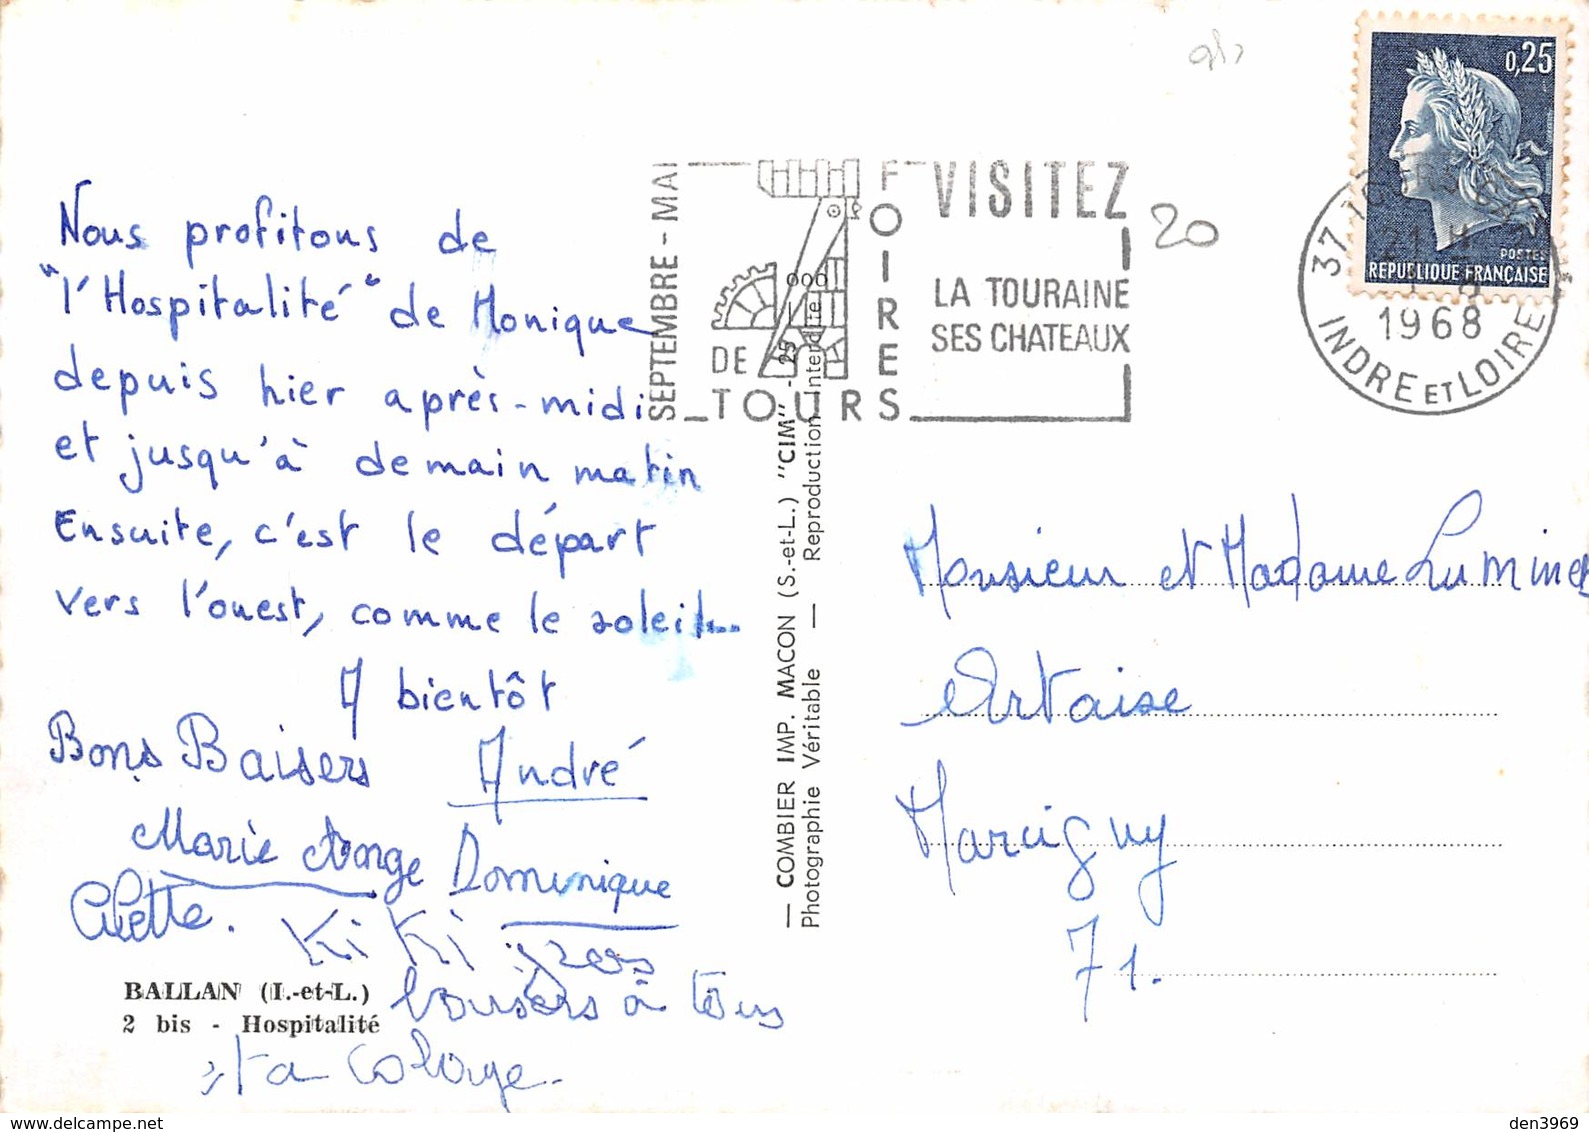 Nous profitons de
"l'Hospitalité" de Monique
depuis hier après-midi
et jusqu'à demain matin
Ensuite, c'est le départ
vers l'ouest, comme le soleil...
A bientôt
Bons Baisers André
Marie Ange Dominique
Kiki gros
baisers à tous
BALLAN (I.-et-L.)
2 bis - Hospitalité
SEPTEMBRE - MAI
FOIRES
DE
TOURS
VISITEZ
LA TOURAINE
SES CHATEAUX
20
— COMBIER IMP. MACON (S.-et-L.) "CIM"
Photographie Véritable — Reproduction Interdite
0,25
POSTES
REPUBLIQUE FRANÇAISE
37 TOURS
1968
INDRE ET LOIRE
Monsieur et Madame Luminet
Artaise
Marcigny
71.
den3969